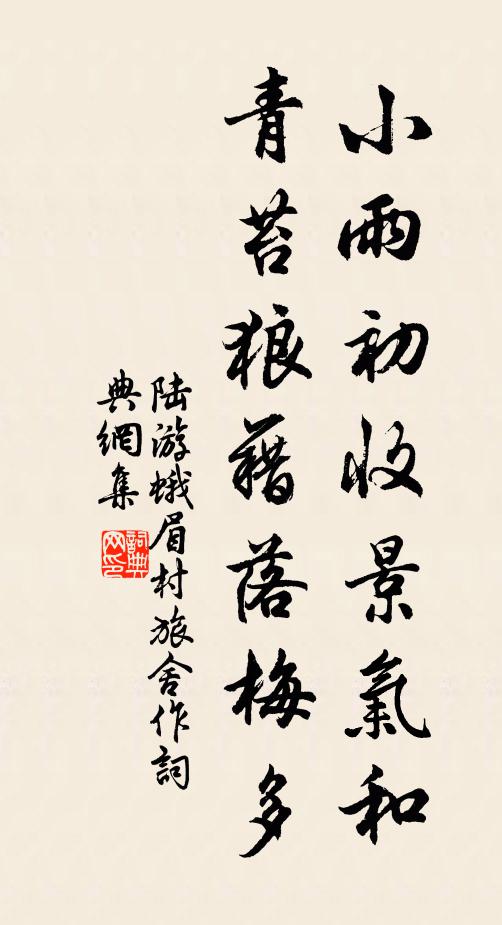 小雨初收景氣和
青苔狼藉落梅多
陆游蛾眉村旅舍作詞
典網集
詞典
网印